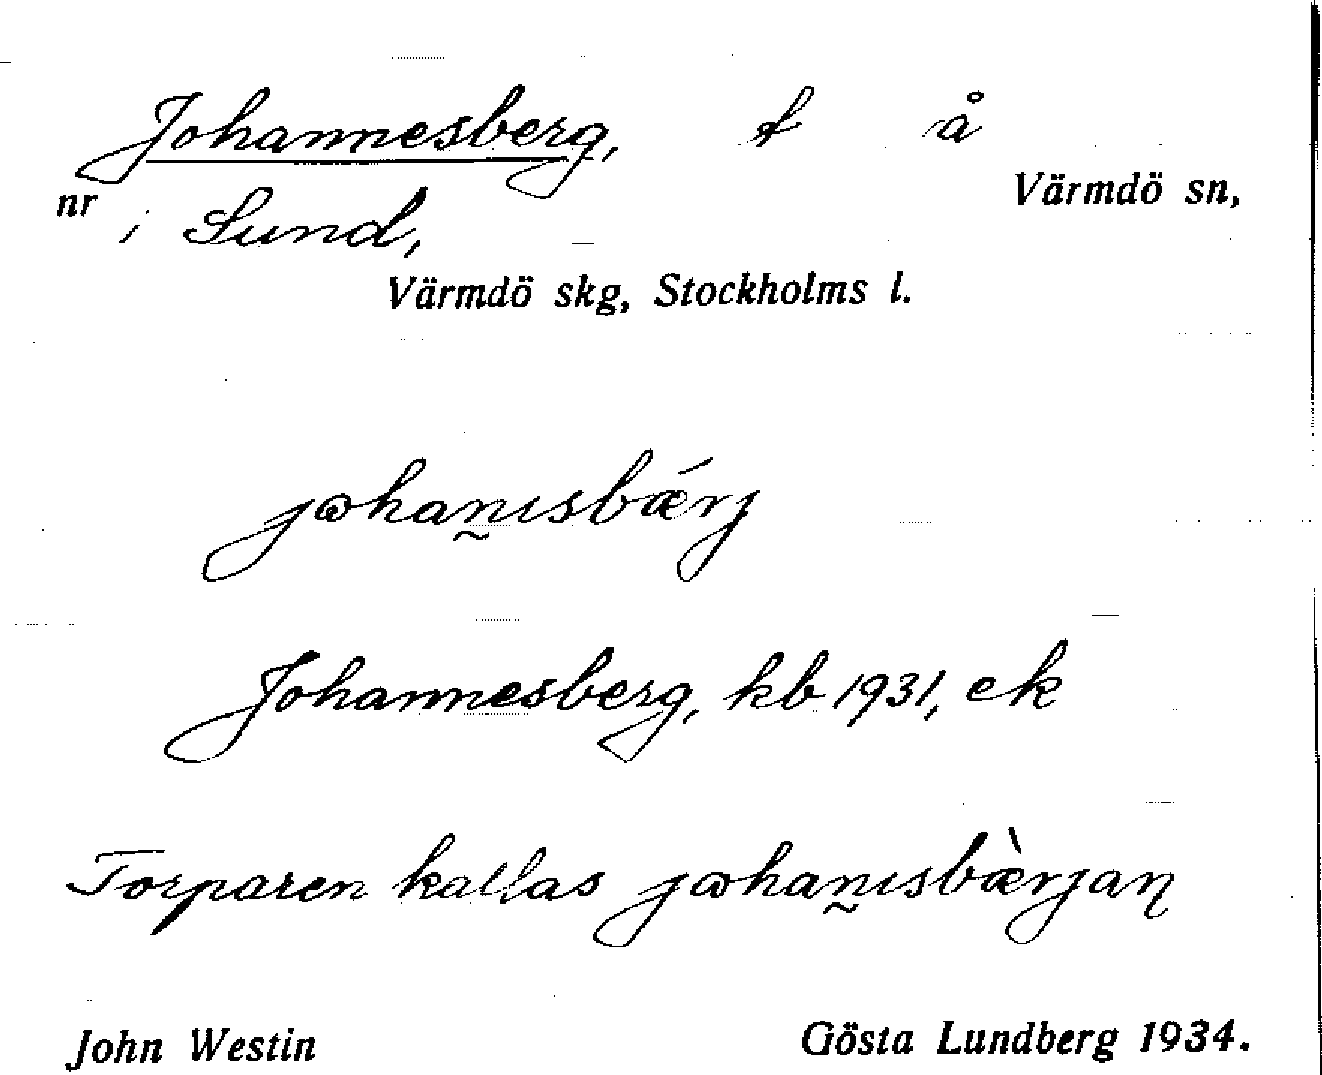 Johannesberg, t å
Värmdö sn,
nr i Sund,
Värmdö skg, Stockholms l.
jꞷhan̰ɪsbǽrj
Johannesberg, kb 1931, ek
Torparen kallas jꞷhan̰ɪsbæ̀rjaɳ
John Westin Gösta Lundberg 1934.